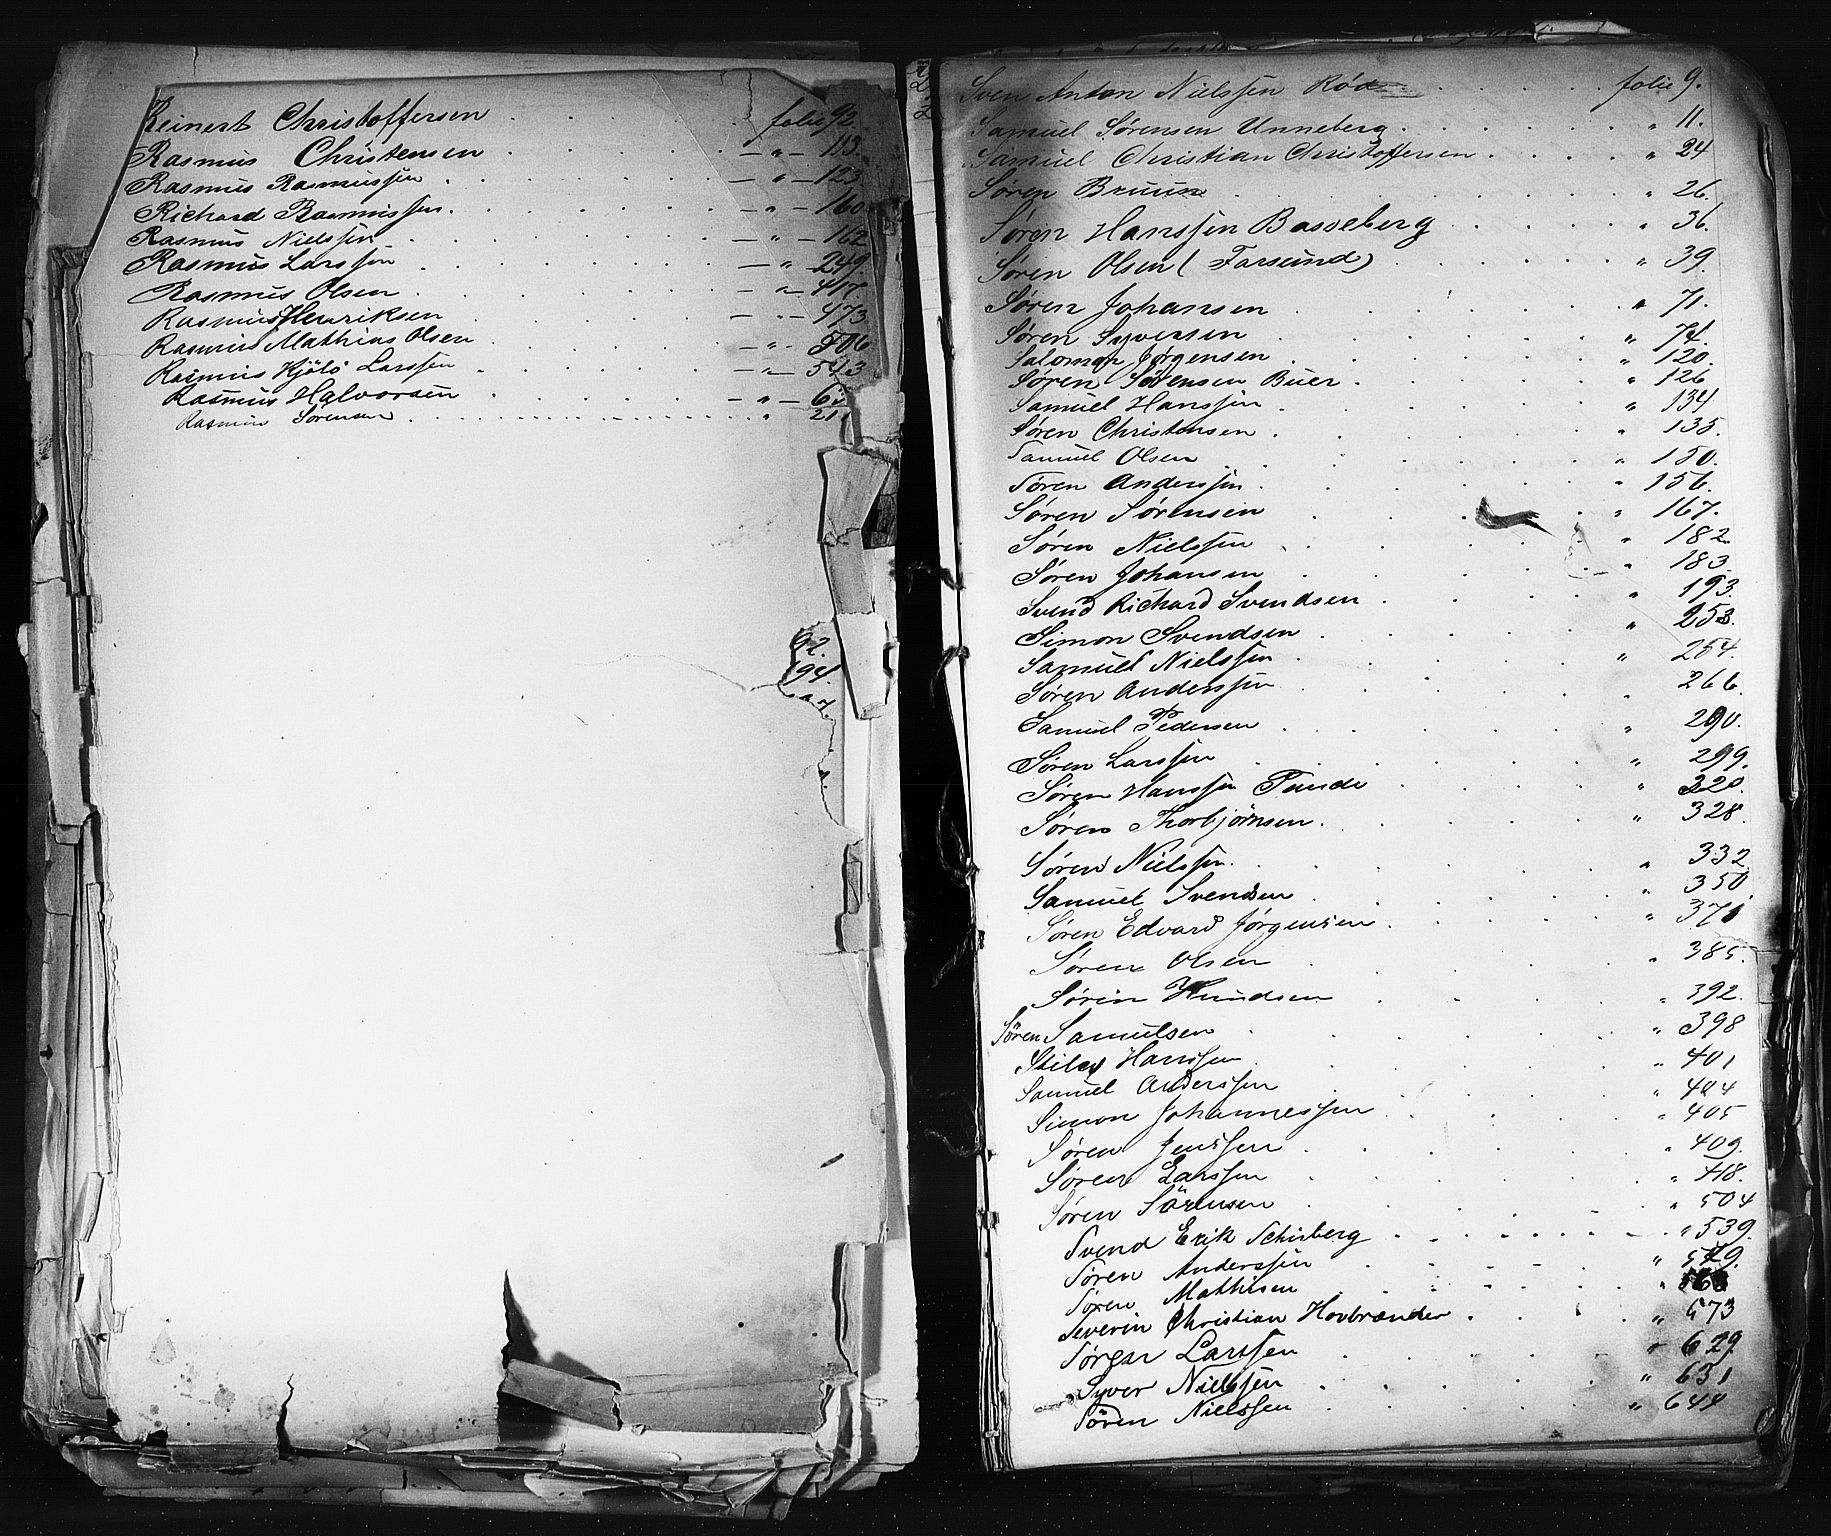 Reinert Christoffersen . . . . folio 92.
Rasmus Christensen . . . . — " — 113
Rasmus Rasmussen . . . . — " — 123
Richard Rasmussen . . . . — " — 160
Rasmus Nielssen . . . . — " — 162
Rasmus Larssen . . . . — " — 249
Rasmus Olsen . . . . — " — 417
Rasmus Henriksen . . . . — " — 473
Rasmus Mathias Olsen . . . . — " — 506
Rasmus Kjölö Larssen . . . . — " — 543
Rasmus Halvorsen . . . . — " —
Rasmus Sörensen . . . . " 211
92.
94.
Sven Anton Nielssen Röd . . . . folio 9.
Samuel Sørensen Unneberg . . . . " 11.
Samuel Christian Christoffersen . . . . " 24
Søren Bruun . . . . " 26.
Søren Hanssen Basseberg . . . . " 36.
Søren Olsen (Farsund) . . . . " 39.
Søren Johansen . . . . " 71.
Søren Syversen . . . . " 74.
Salomon Jørgensen . . . . " 120.
Søren Sørensen Buer . . . . " 126
Samuel Hanssen . . . . " 134
Søren Christensen . . . . " 135.
Samuel Olsen . . . . " 150.
Søren Anderssen . . . . " 156.
Søren Sørensen . . . . " 167.
Søren Nielssen . . . . " 182
Søren Johansen . . . . " 183.
Svend Richard Svendsen . . . . " 193.
Simon Svendsen . . . . " 253.
Samuel Nielssen . . . . " 254.
Søren Anderssen . . . . " 266.
Samuel Pedersen . . . . " 290.
Søren Larssen . . . . " 299.
Søren Hanssen Tande . . . . " 320.
Søren Thorbjørnsen . . . . " 328.
Søren Nielssen . . . . " 332
Samuel Svendsen . . . . " 350
Søren Edvard Jørgensen . . . . " 371
Søren Olsen . . . . " 385.
Sørin Knudsen . . . . " 392.
Sören Samuelsen . . . . " 398
Hanssen . . . . " 401
Samuel Anderssen . . . . " 404
Simon Johannessen . . . . " 405
Søren Jenssen . . . . " 409.
Søren Larssen . . . . " 418.
Søren Sörensen . . . . " 504
Svend Erik Schisberg . . . . " 539.
Søren Anderssen . . . . " 549.
Søren Mathisen . . . . "
Severin Christian Hovbrænder . . . . " 573
Sørgen Larssen . . . . " 629
Syver Nielssen . . . . " 631
Sören Nielssen . . . . " 644